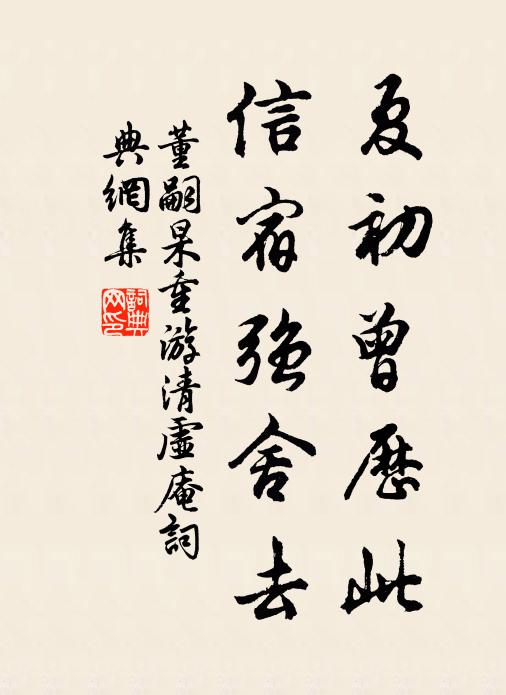 夏初曾歷此
信宿強舍去
董嗣杲重游清虛庵詞
典網集
詞典網印